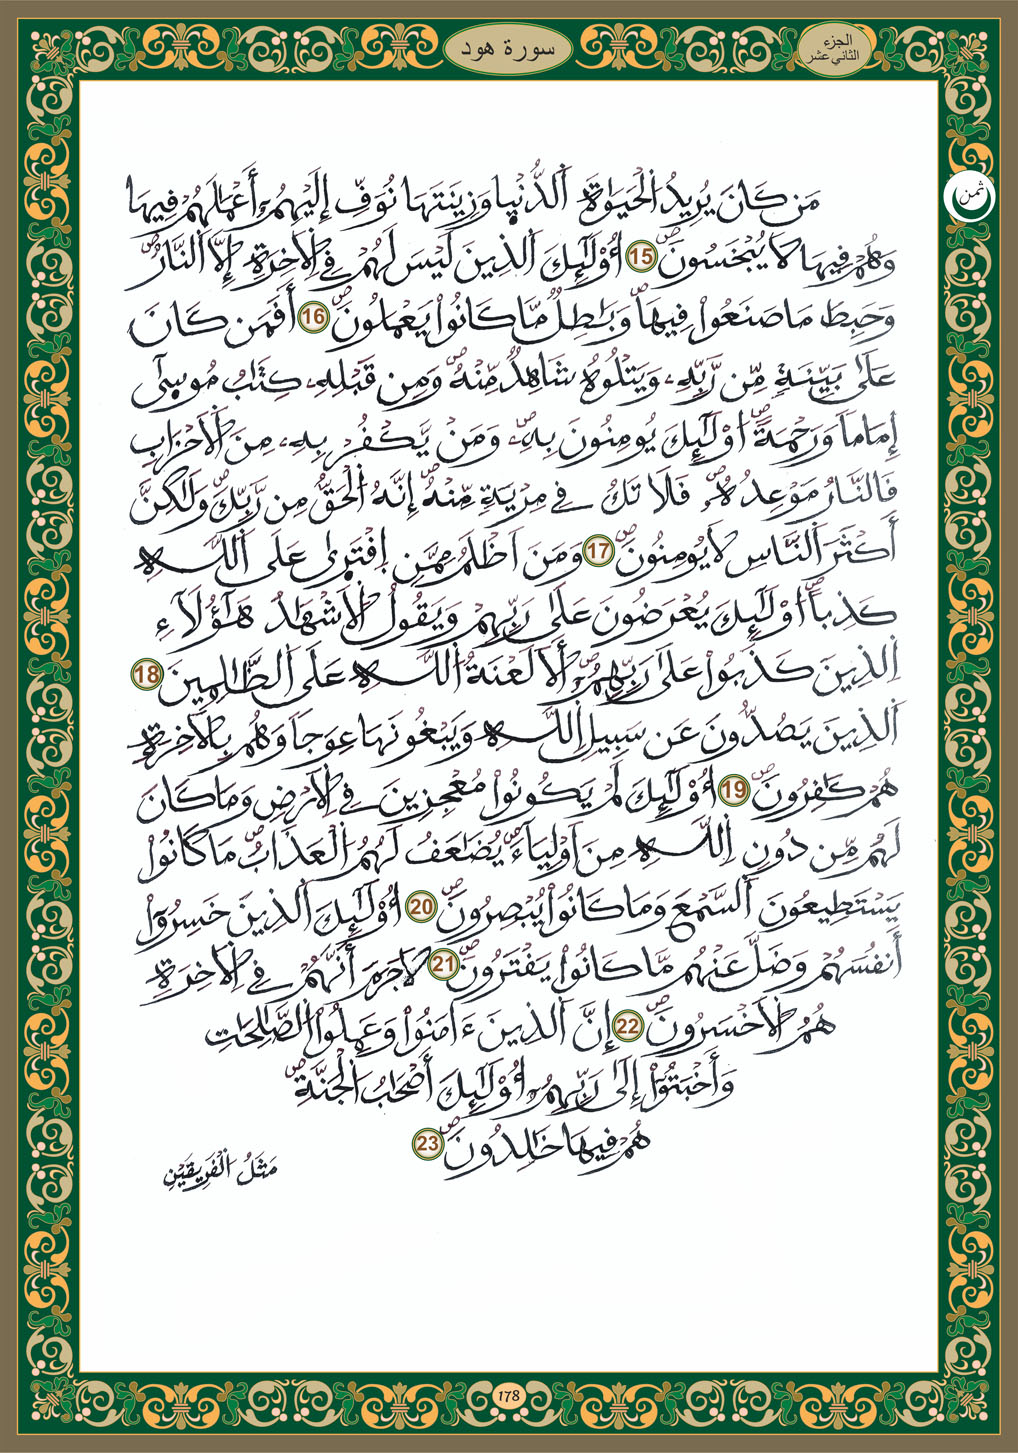 الجزء
الثاني عشر
سورة هود
ثمن
مَن كَانَ يُرِيدُ الْحَيَوٰةَ الدُّنْيا وَزِينَتَهَا نُوَفِّ إِلَيْهِمُۥ أَعْمَٰلَهُمْ فِيهَا
وَهُمْ فِيهَا لَا يُبْخَسُونَۖ 15 أُوْلَٰٓئِكَ الذِينَ لَيْسَ لَهُمْ فِے اِلَاخِرَةِ إِلَّا النَّارُۖ
وَحَبِطَ مَا صَنَعُواْ فِيهَاۖ وَبَٰطِلٌ مَّا كَانُواْ يَعْمَلُونَۖ 16 أَفَمَن كَانَ
عَلَىٰ بَيِّنَةٍ مِّن رَّبِّهِۦ وَيَتْلُوهُ شَاهِدٌ مِّنْهُۖ وَمِن قَبْلِهِۦ كِتَٰبُ مُوسۭىٰٓ
إِمَاماً وَرَحْمَةًۖ اوْلَٰٓئِكَ يُومِنُونَ بِهِۖۦ وَمَنْ يَّكْفُرْ بِهِۦ مِنَ اَلَاحْزَابِ
فَالنَّارُ مَوْعِدُهُۖۥ فَلَا تَكُ فِے مِرْيَةٍ مِّنْهُۖ إِنَّهُ الْحَقُّ مِن رَّبِّكَۖ وَلَٰكِنَّ
أَكْثَرَ اَلنَّاسِ لَا يُومِنُونَۖ 17 وَمَنَ اَظْلَمُ مِمَّنِ اِفْتَر۪ىٰ عَلَى اَللَّهِ
كَذِباًۖ اوْلَٰٓئِكَ يُعْرَضُونَ عَلَىٰ رَبِّهِمْ وَيَقُولُ اُلَاشْهَٰدُ هَٰٓؤُلَآءِ
اِلذِينَ كَذَبُواْ عَلَىٰ رَبِّهِمُۥٓۖ أَلَا لَعْنَةُ اُللَّهِ عَلَى اَلظَّٰلِمِينَ 18
اَلذِينَ يَصُدُّونَ عَن سَبِيلِ اِللَّهِ وَيَبْغُونَهَا عِوَجاً وَهُم بِالَاخِرَةِ
هُمْ كَٰفِرُونَۖ 19 أُوْلَٰٓئِكَ لَمْ يَكُونُواْ مُعْجِزِينَ فِے اِلَارْضِ وَمَا كَانَ
لَهُم مِّن دُونِ اِللَّهِ مِنَ اَوْلِيَآءَۖ يُضَٰعَفُ لَهُمُ الْعَذَابُۖ مَا كَانُواْ
يَسْتَطِيعُونَ اَلسَّمْعَ وَمَا كَانُواْ يُبْصِرُونَۖ 20 أُوْلَٰٓئِكَ اَلذِينَ خَسِرُوٓاْ
أَنفُسَهُمْ وَضَلَّ عَنْهُم مَّا كَانُواْ يَفْتَرُونَۖ 21 لَا جَرَمَ أَنَّهُمْ فِے اِلَاخِرَةِ
هُمُ اُلَاخْسَرُونَۖ 22 إِنَّ اَلذِينَ ءَامَنُواْ وَعَمِلُواْ اُلصَّٰلِحَٰتِ
وَأَخْبَتُوٓاْ إِلَىٰ رَبِّهِمُۥٓ أُوْلَٰٓئِكَ أَصْحَٰبُ اُلْجَنَّةِۖ
هُمْ فِيهَا خَٰلِدُونَۖ 23
مَثَلُ الْفَرِيقَيْنِ
178